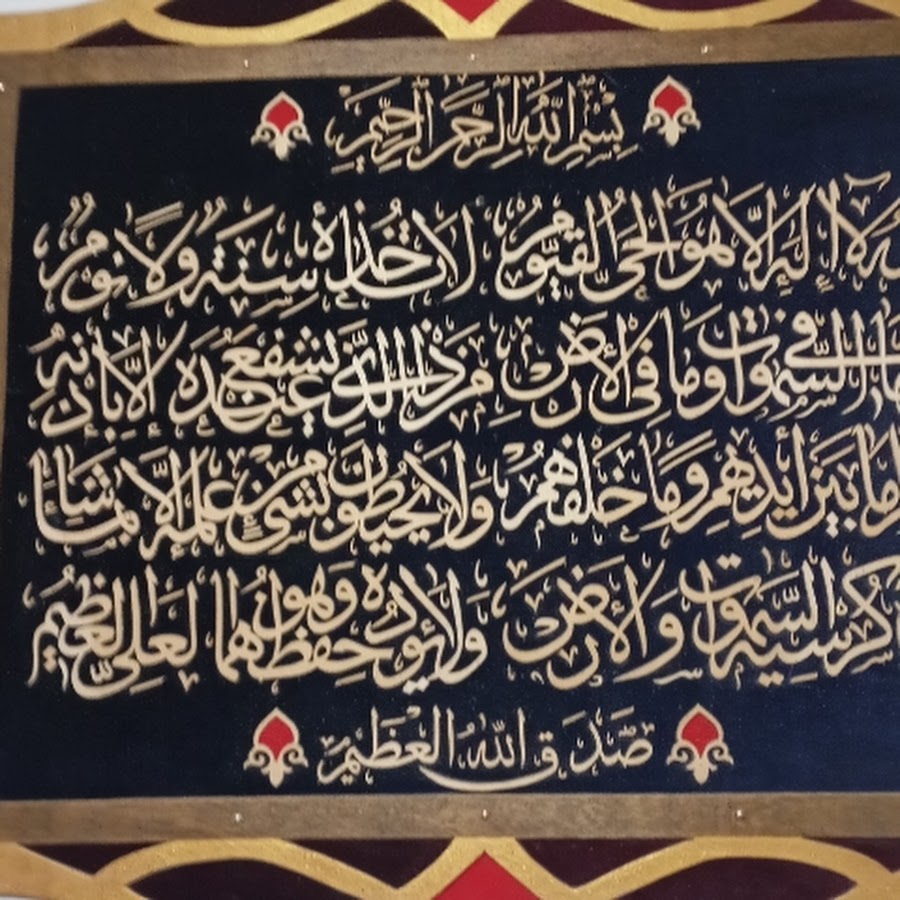 بِسْمِ اللَّهِ الرَّحْمَنِ الرَّحِيمِ
لَا إِلَهَ إِلَّا هُوَ الْحَيُّ الْقَيُّومُ لَا تَأْخُذُهُ سِنَةٌ وَلَا نَوْمٌ
فِي السَّمَوَاتِ وَمَا فِي الْأَرْضِ مَنْ ذَا الَّذِي يَشْفَعُ عِنْدَهُ إِلَّا بِإِذْنِهِ
مَا بَيْنَ أَيْدِيهِمْ وَمَا خَلْفَهُمْ وَلَا يُحِيطُونَ بِشَيْءٍ مِنْ عِلْمِهِ إِلَّا بِمَا شَاءَ
كُرْسِيُّهُ السَّمَوَاتِ وَالْأَرْضَ وَلَا يَئُودُهُ حِفْظُهُمَا وَهُوَ الْعَلِيُّ الْعَظِيمُ
صَدَقَ اللَّهُ الْعَظِيمُ